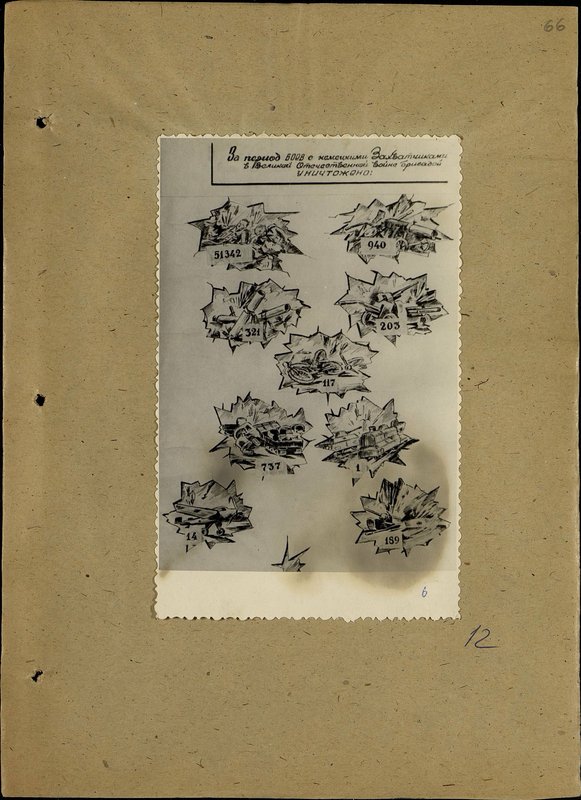 66
За период боев с немецкими Захватчиками
в Великой Отечественной войне бригадой
УНИЧТОЖЕНО:
51342 940
321 203
117
737 1
14 189
6
12